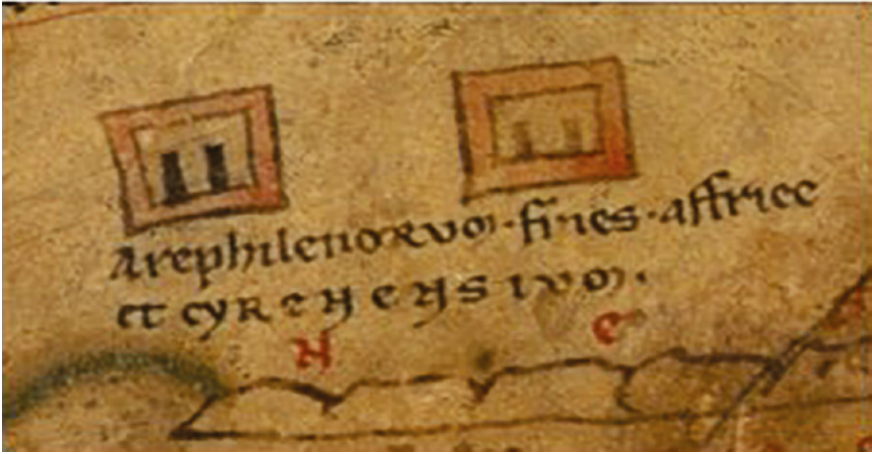 Arephilenorvm·fines·affrice
et cyrenensivm.
N e